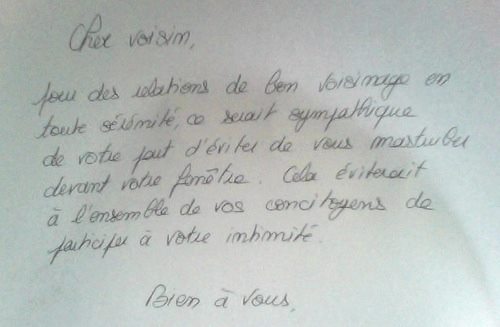 Cher voisin,
pour des relations de bon voisinage en
toute sérénité, ce serait sympathique
de votre part d'éviter de vous masturber
devant votre fenêtre. Cela éviterait
à l'ensemble de vos concitoyens de
participer à votre intimité.
Bien à vous,